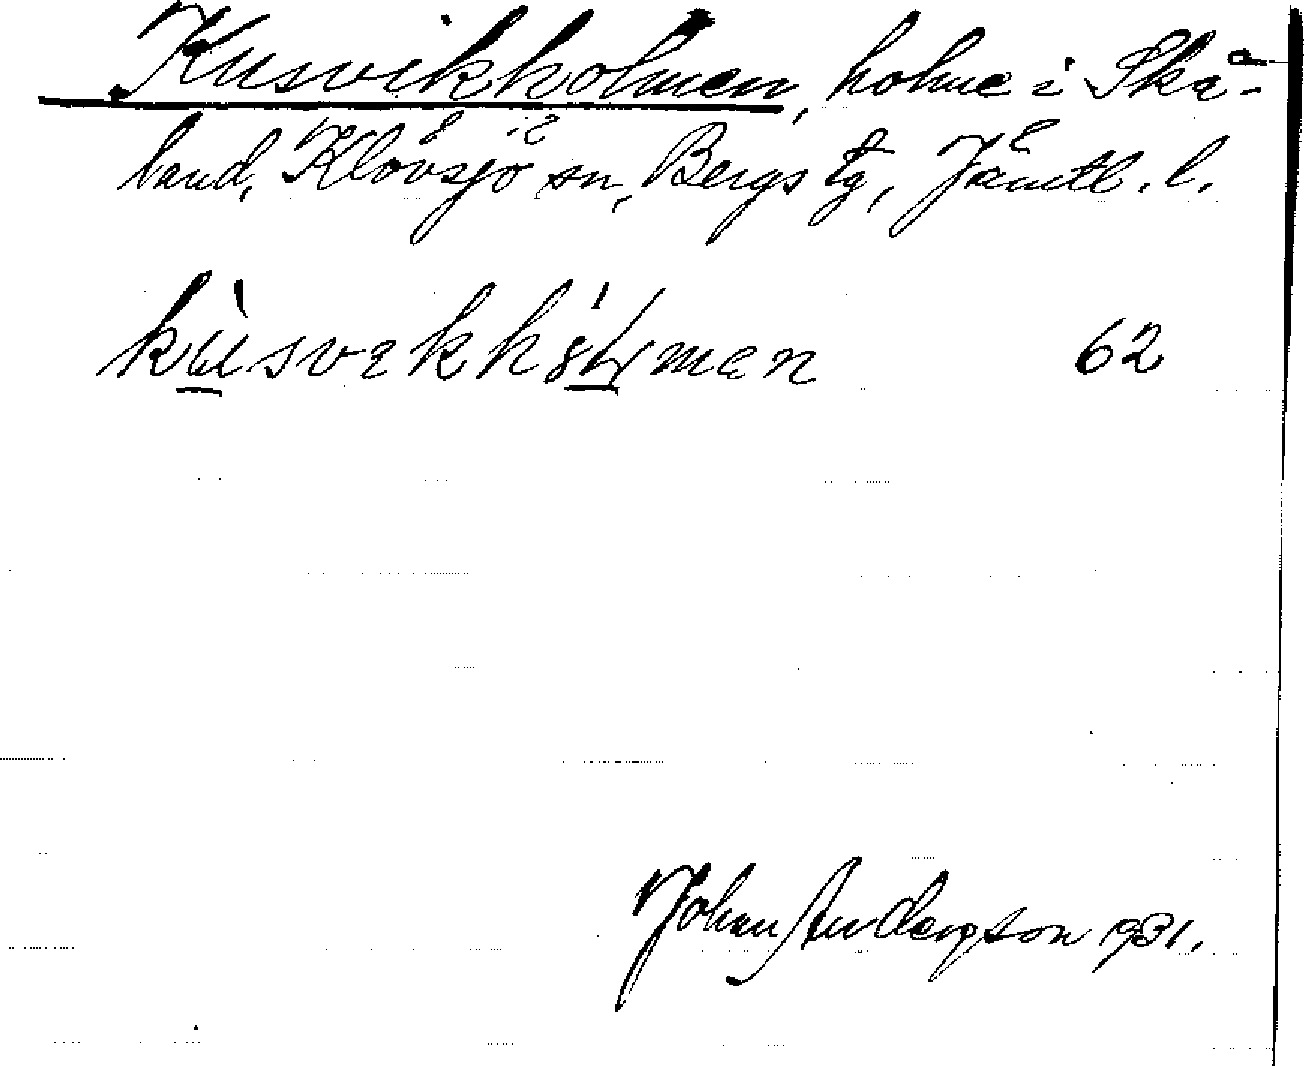 Kusvikholmen, holme i Skå-
land, Klövsjö sn, Bergs tg, Jämtl. l.
62
Johan Anderson 1931.